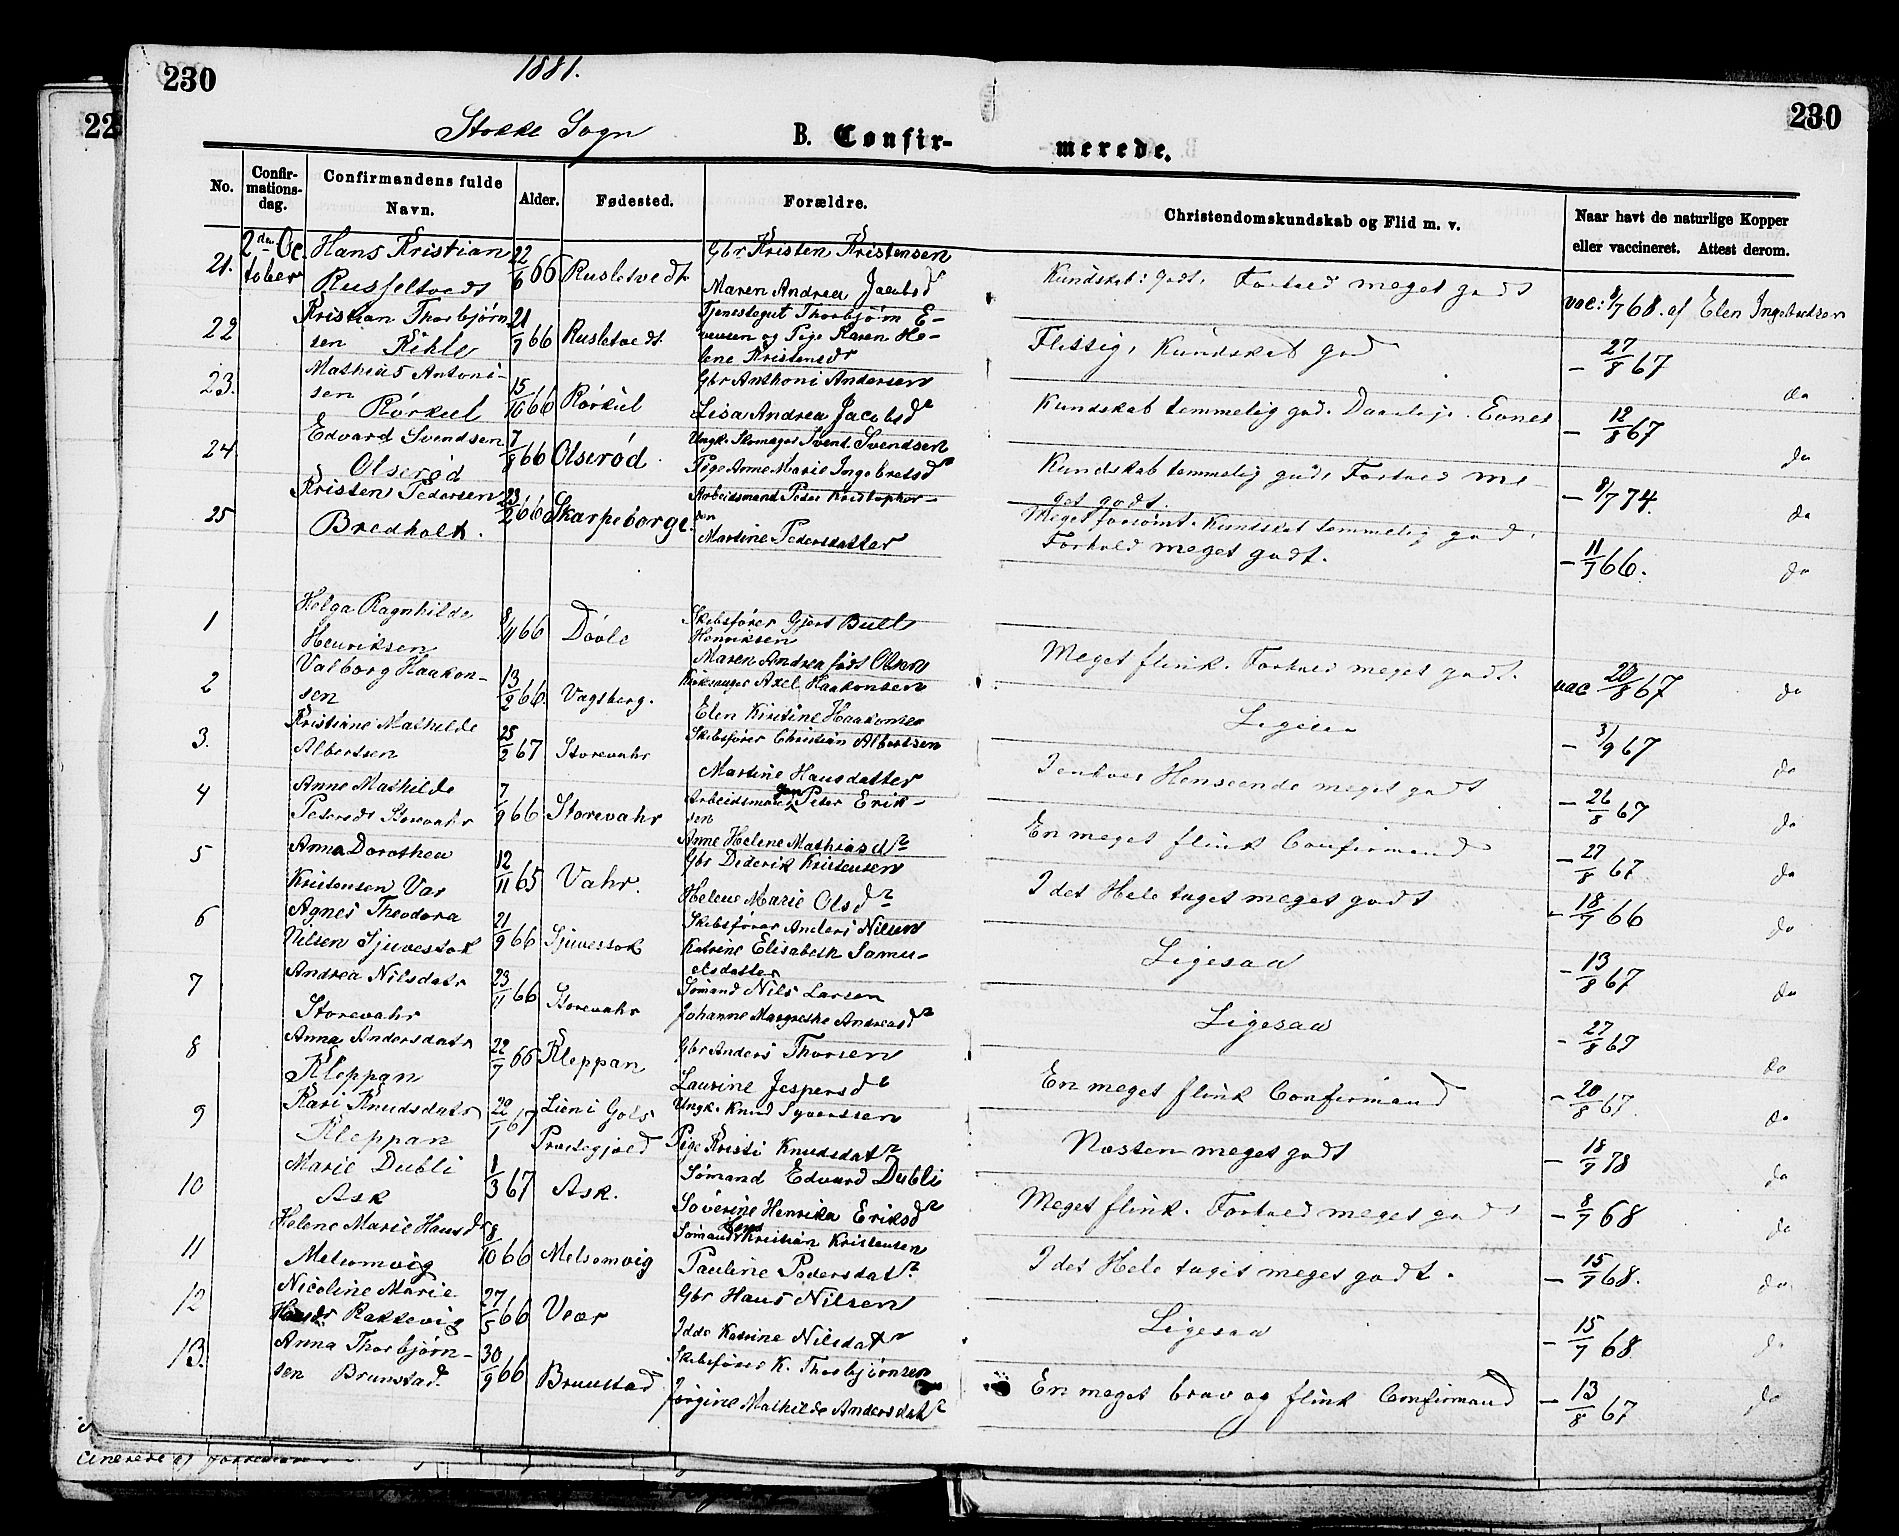 230
1881.
230
22
Stokke Sogn
B. Confir-
merede.
No.
Confir-
mations-
dag.
Confirmandens fulde
Navn.
Alder.
Fødested.
Forældre.
Christendomskundskab og Flid m. v.
Naar havt de naturlige Kopper
eller vaccineret. Attest derom.
21. 2den Oc Hans Kristian 22/6 66 Rusletvedt Gbr Kristen Kristensen
tober Russeltvedt Maren Andrea Jacobsdr
Kundskab: godt. Forhold meget godt
vac: 8/7 68. af Elen Ingebretsen
22 Kristian Thorbjørn 21/7 66 Rusletvedt Tjenestegut Thorbjørn E-
sen Kihle vensen og Pige Karen He-
lene Kristensdr
Flittig, Kundskab god
- 27/8 67 do
23. Mathius Antoni- 15/10 66 Rørkul Gbr Anthoni Andersen
sen Rørkul Lisa Andrea Jacobsdr
Kundskab temmelig god. Daarlige Evner
- 12/8 67 do
24. Edvard Svendsen 7/8 66 Olserød Ungk. Skomager Svend Svendsen
Olserød Pige Anne Marie Ingebretsdr
Kundskab temmelig god, Forhold me-
get godt.
- 8/7 74. do
25 Kristen Pedersen 23/2 66 Skarpeborge Arbeidsmand Peder Kristopher-
sen
Bredholt. Martine Pedersdatter
Meget forsømt. Kundskab temmelig god.
Forhold meget godt.
- 11/7 66. do
1 Helga Ragnhilde 8/11 66 Døvle Skibsfører Gjert Bull
Henriksen Henriksen
Maren Andrea født Olsen
Meget flink. Forhold meget godt.
vac 20/8 67 do
2 Valborg Haakon- 13/2 66. Vagsberg. Kirkesanger Axel Haakonsen
sen Elen Kirstine Haakonsen
Ligesaa
- 3/9 67 do
3. Kristiane Mathilde 25/2 67 Storevahr Skibsfører Christian Albertsen
Albertsen Martine Hansdatter
I enhver Henseende meget godt
- 26/8 67 do
4 Anne Mathilde 7/9 66 Storevahr Arbeidsmand Peter Erik-
Petersdr Storevahr sen
Anne Helene Mathiasdr
En meget flink Confirmand
- 27/8 67. do
5 Anna Dorothea 12/11 65 Vahr. Gbr Dederik Kristensen
Kristensen Var Helene Marie Olsdr
I det Hele taget meget godt
- 18/7 66 do
6 Agnes Theodora 21/9 66 Sjuvestok Skibsfører Anders Nilsen
Nilsen Sjuvestok Katrine Elisabeth Samu-
elsdatter
Ligesaa
- 13/8 67 do
7 Andrea Nilsdatr 23/11 66 Storevahr Sømand Nils Larsen
Storevahr Johanne Margrethe Andreasdr
Ligesaa
- 27/8 67 do
8 Anna Andersdatr 22/7 66 Kleppan Gbr Anders Thorsen
Kleppan Laurine Jespersdr
En meget flink Confirmand
- 20/8 67. do
9 Kari Knudsdatr 20/1 67 Lien i Gols Ungk. Knud Syvertsen
Kleppan Præstegjæld Pige Kristi Knudsdatr
Næsten meget godt
- 18/7 78 do
10 Marie Dubli 1/3 67 Ask. Sømand Edvard Dubli
Ask Søverine Henrika Eriksdr
Meget flink. Forhold meget godt
- 8/7 68 do
11 Helene Marie Hansdr 8/10 66 Melsomvig Sømand Hans Kristian Kristensen
Melsomvig Pauline Pedersdatr
I det Hele taget meget godt.
- 15/7 68. do
12 Nicoline Marie 27/5 66 Vear Gbr Hans Nilsen
Hansdr Rakkevig Idde Katrine Nilsdatr
Ligesaa
- 15/7 68 do
13. Anna Thorbjørn- 30/9 66 Brunstad Skibsfører K. Thorbjørnsen
sen Brunstad. Jørgine Mathilde Andersdatr
En meget brav og flink Confirmand
- 13/8 67 do